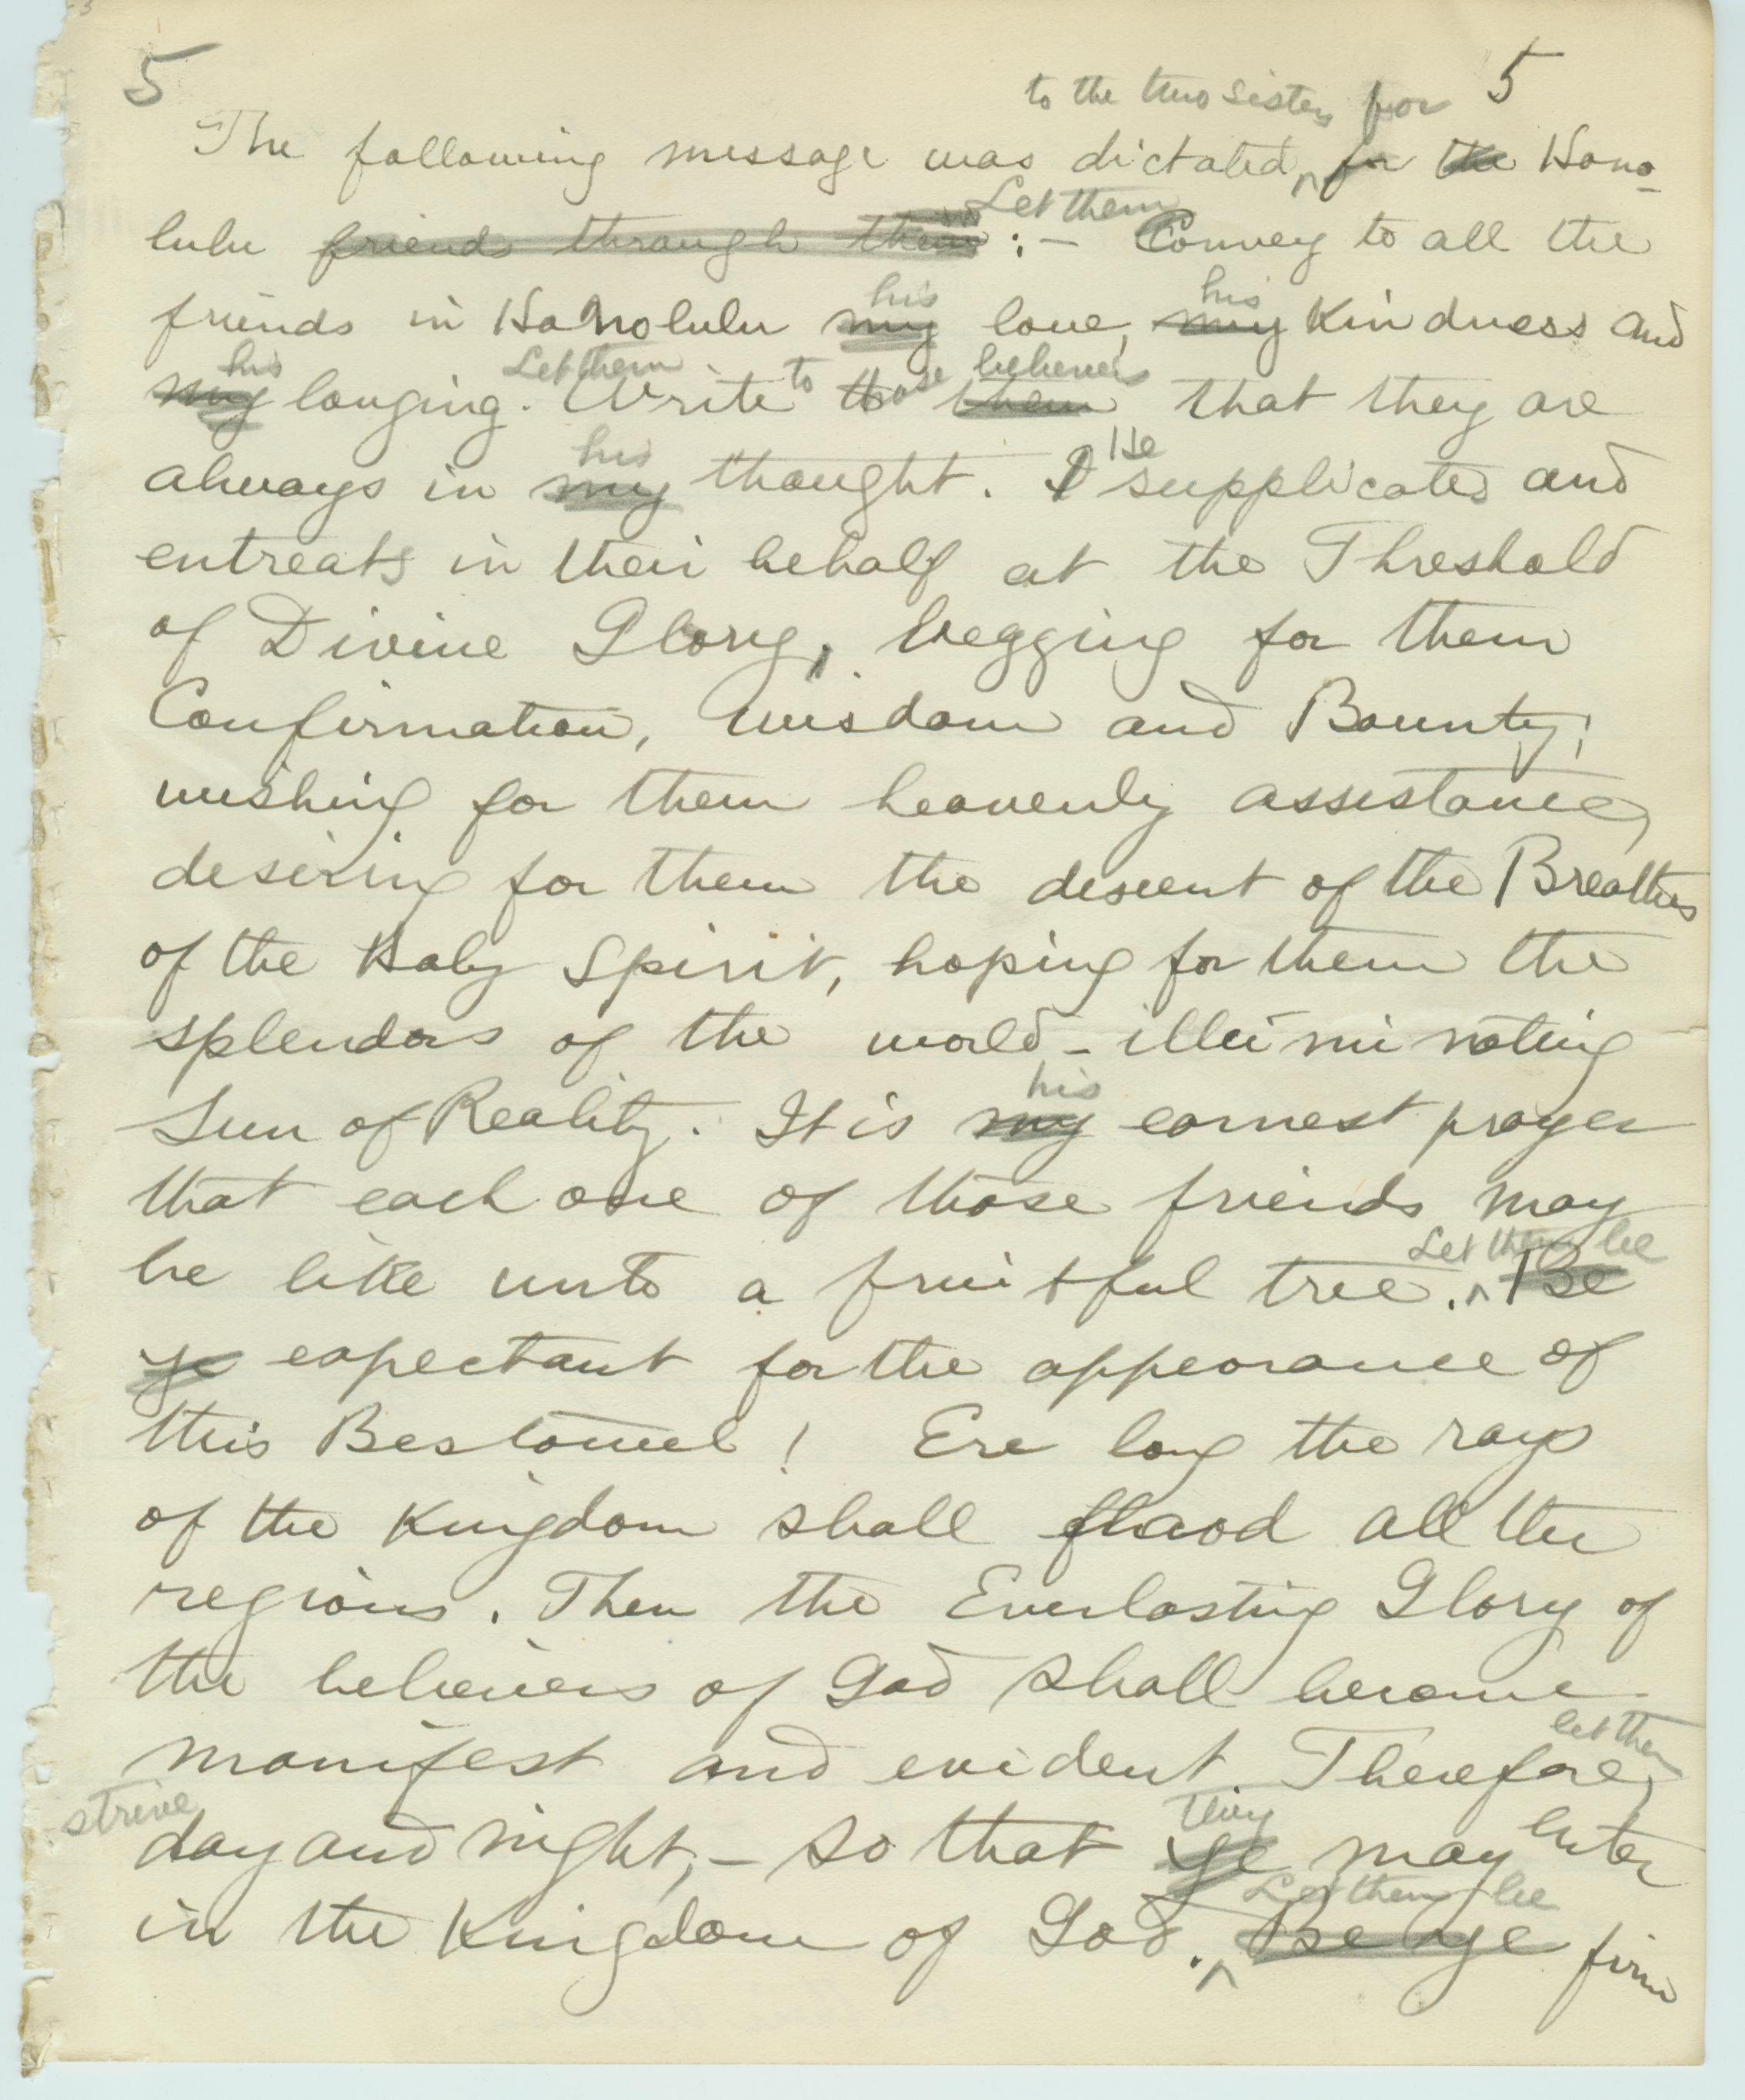 5 5
to the two sisters for
The following message was dictated, for the Hono-
Let them
lulu friends through them :- Convey to all the
his his
friends in Honolulu my love, my Kindness and
his Let them to those believers
my longing. Write to them that they are
his He
always in my thought. I supplicates and
entreats in their behalf at the Threshold
of Divine Glory, begging for them
Confirmation, wisdom and Bounty;
wishing for them heavenly assistance,
desiring for them the descent of the Breaths
of the Holy Spirit, hoping for them the
splendors of the world-illuminating
his
Sun of Reality. It is my earnest prayer
that each one of those friends may
Let them be
be like unto a fruitful tree. Be
ye expectant for the appearance of
this Bestowal! Ere long the rays
of the Kingdom shall flood all the
regions. Then the Everlasting Glory of
the believers of God shall become
let them
manifest and evident. Therefore,
strive they
day and night,- so that ye may enter
Let them be
in the Kingdom of God. Be ye firm